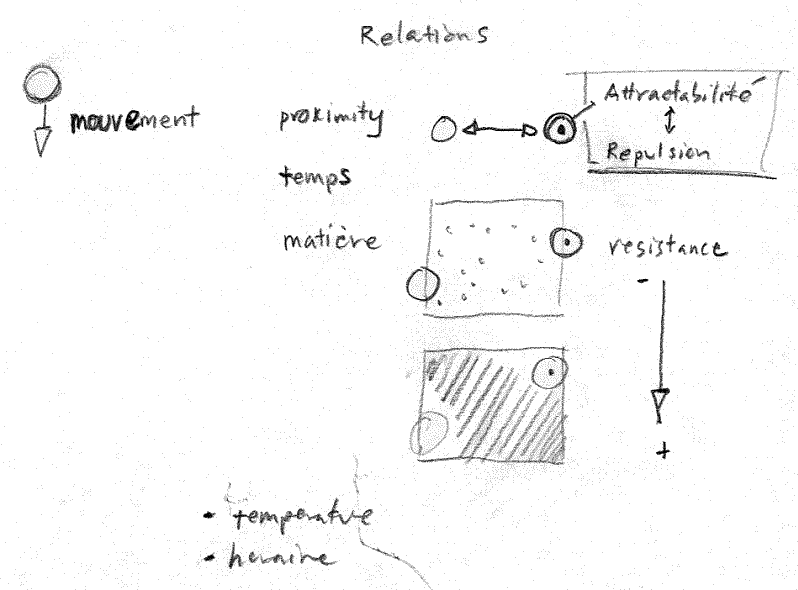 Relations
mouvement
proximity
Attractabilité
Repulsion
temps
matière
resistance
-
+
• temperature